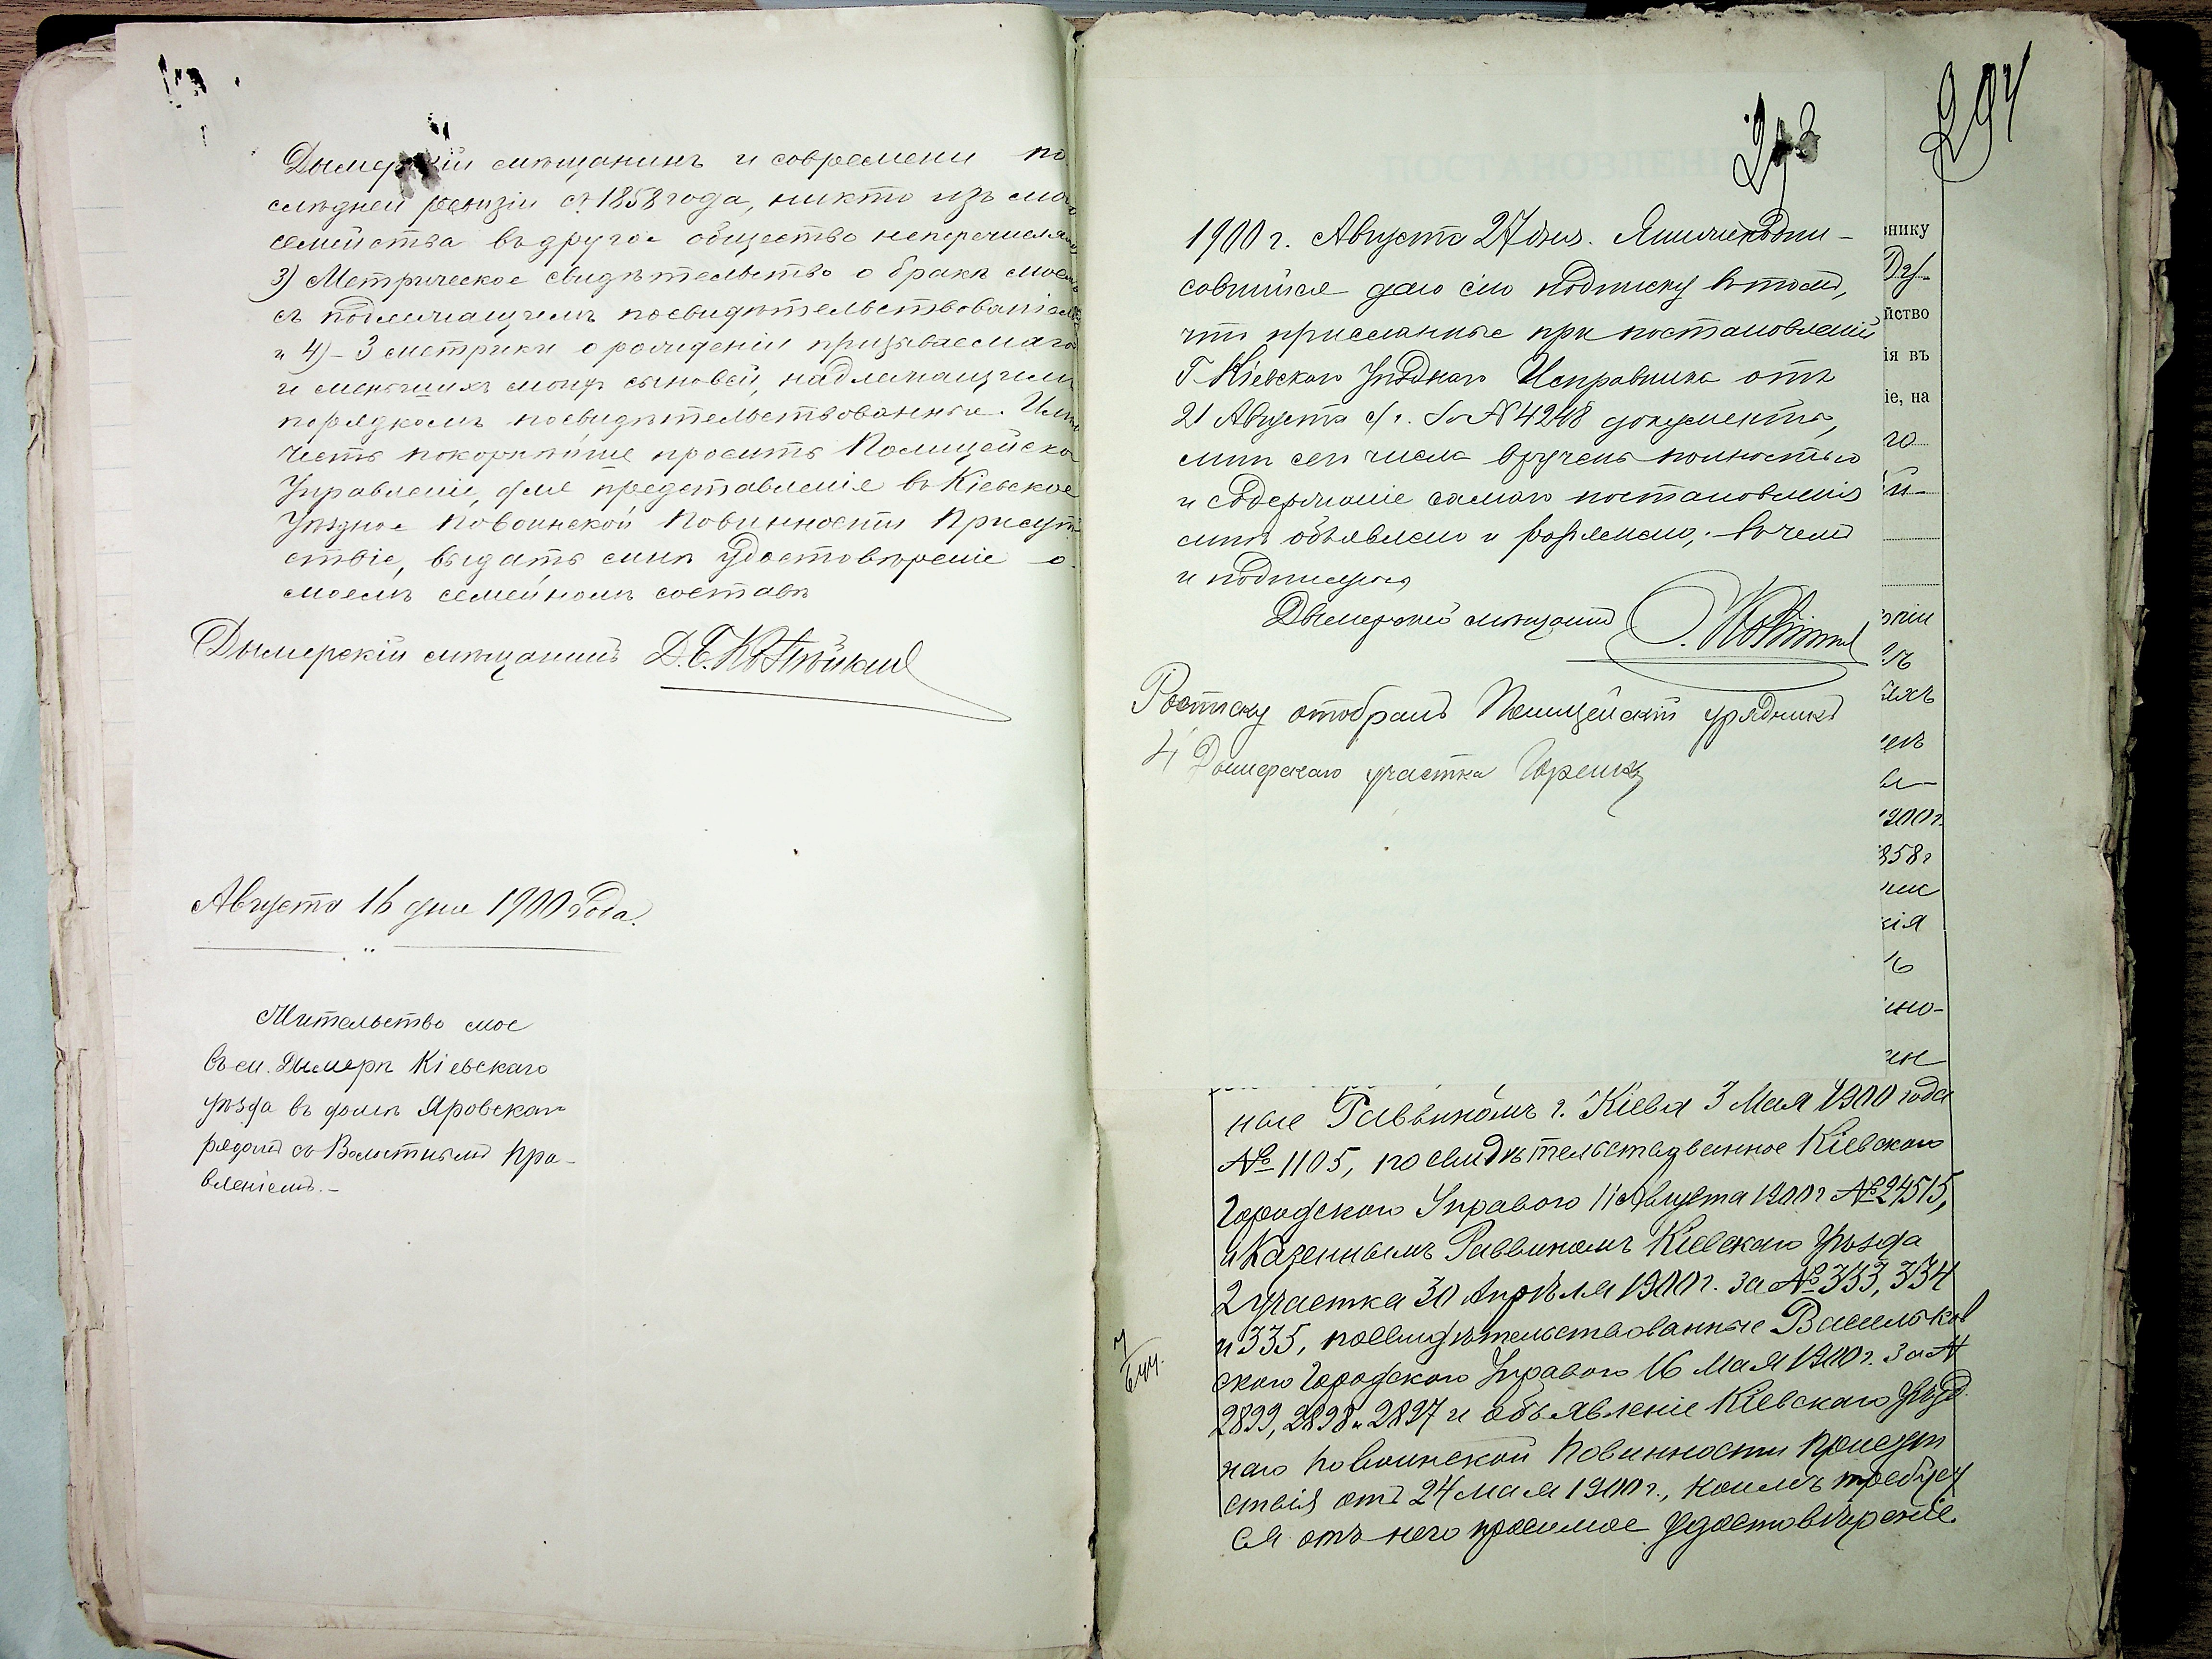 Дымерскій мѣщанинъ и современи по
слѣдней ревизіи съ 1858 года, никто изъ мое
семейства въ другое общество неперечислял
3) Метрическое свидѣтельство о бракѣ моем
съ подлежащимъ посвидѣтельствованіем
и 4) - 3 метрики о рожденіи призываемаго
и меньшихъ моихъ сыновей, надлежащимъ
порядкомъ посвидѣтельствованныя. Имѣю
честь покорнѣйше просить Полицейское
Управленіе, для представленія въ Кіевское
Уѣздное Повоинской Повинности Присут
ствіе, выдать мнѣ удостовѣреніе о
моемъ семейномъ составѣ
Дымерскій мѣщанинъ
Августа 16 дня 1900 года.
Жительство мое
въ м. Дымерѣ Кіевскаго
уѣзда въ домѣ Яровскаго
рядомъ съ Волостнымъ Пра-
вленіемъ.-
293
294
1900 г. Августа 27 дня. Я нижеподпи-
савшійся даю сію подписку въ томъ,
что присланные при постановленіи
Г Кіевскаго Уѣзднаго Исправника отъ
21 Августа с/г. за № 4248 документы,
мнѣ сего числа вручены полностью
и содержаніе самаго постановленія
мнѣ объявлено и разъяснено, въ чемъ
и подписуюсь
Дымерскій мѣщанинъ
Росписку отобралъ Полицейскій урядникъ
4 Дымерскаго участка
нику
йство
ія въ
іе, на
го
1900 г.
858 г
кія
но-
ные Раввиномъ г. Кіева 3 Мая 1900 года
№ 1105, посвидѣтельствованное Кіевскою
Городскою Управою 11 Августа 1900 г № 24515,
и Казеннымъ Раввиномъ Кіевскаго Уѣзда
2 участка 30 Апрѣля 1900 г. за № 333, 334
и 335, посвидѣтельствованные Васильков
скою Городскою Управою 16 Мая 1900 г. за №
2899, 2898 и 2897 и объявленіе Кіевскаго Уѣзд
наго Повоинской Повинности Присут
ствія отъ 24 мая 1900 г., коимъ требует
ся отъ него просимое удостовѣреніе.